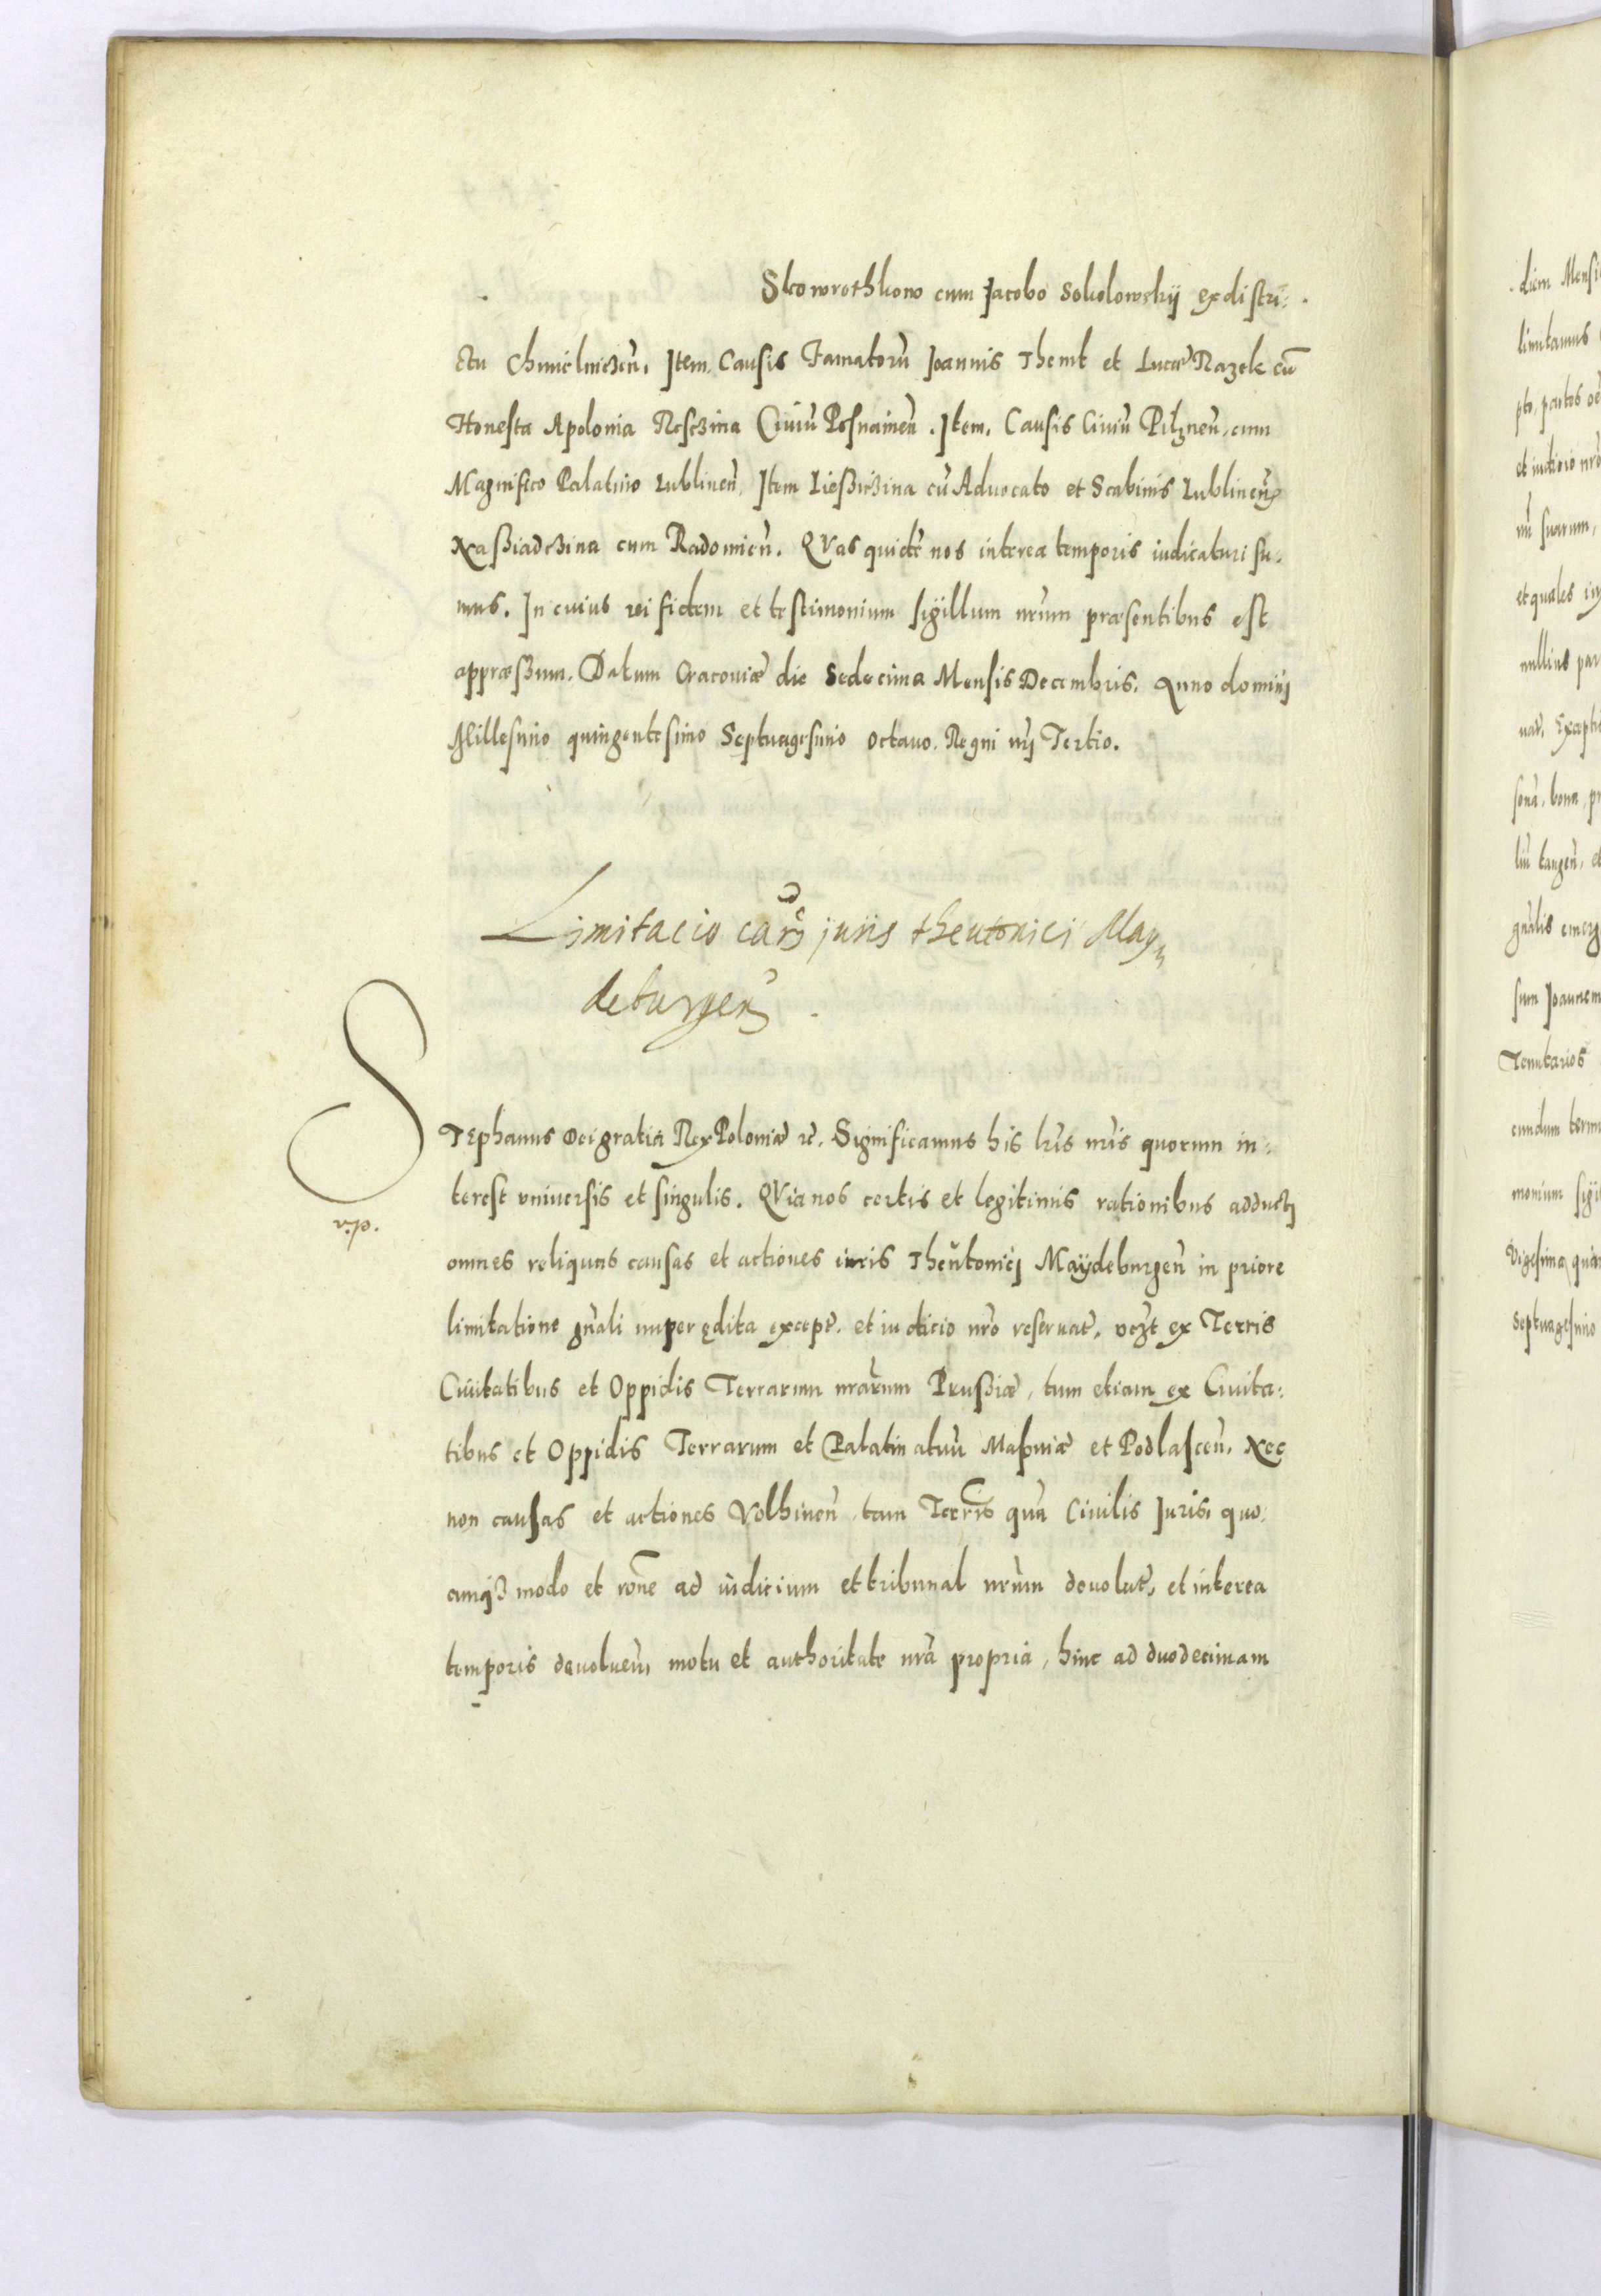 Skowrothkow cum Jacobo Sokolowskij ex distri:
ctu Chmielniczen̄. Item Causis Famatorū Joannis Themt et Lucæ Razek cū
Honesta Apolonia Resczina Civiū Posnanien̄. Item. Causis Civiū Pilznen̄, cum
Magnifico Palatino Lublinen̄, Item Liesziczina cū Advocato et Scabinis Lublinen̄
Naßiadczina cum Radomien̄. QVas quidē nos interea temporis iudicaturi su-
mus. In cuius rei fidem et testimonium sigillum nr̄um præsentibus est
appræßum. Datum Cracoviæ die Sedecima Mensis Decembris. Anno domini
Millesimo quingentesimo Septuagesimo octavo. Regni nr̄i Tertio.
Limitacio caȓ juris theutonici May
deburgen̄.
STephanus Dei gratia Rex Poloniæ etc̄. Significamus his lr̄is nr̄is quorum in:
terest universis et singulis. QVia nos certis et legitimis rationibus adducti
v.p.
omnes reliquas causas et actiones iuris Theŭtonici Maÿdeburgen̄ in priore
limitatione gn̄ali nuper ędita except̄. et iudicio nr̄o reservat̄. vcz̄t ex Terris
Civitatibus et Oppidis Terrarum nr̄arum Prußiæ, tum etiam ex Civita:
tibus et Oppidis Terrarum et Palatinatuū Masoviæ et Podlascen̄. Nec
non causas et actiones Volhinen̄ tam Terr̄is quā Civilis Juris, quo
cunq3 modo et rōne ad iudicium et tribunal nr̄um devolut̄, et interea
temporis devoluen̄, motu et authoritate nr̄a propria, hinc ad duodecimam
diem Mensi
limitamus
pto, partes oē
et iudicio nr̄o
rū suarum,
et quales
nullius par
sonā, bona, pr
liū tangen̄, et
gn̄alis emerg
sum Joannem
Tenutarios
cundum term
monium sigi
Vigesima quar
Septuagesimo